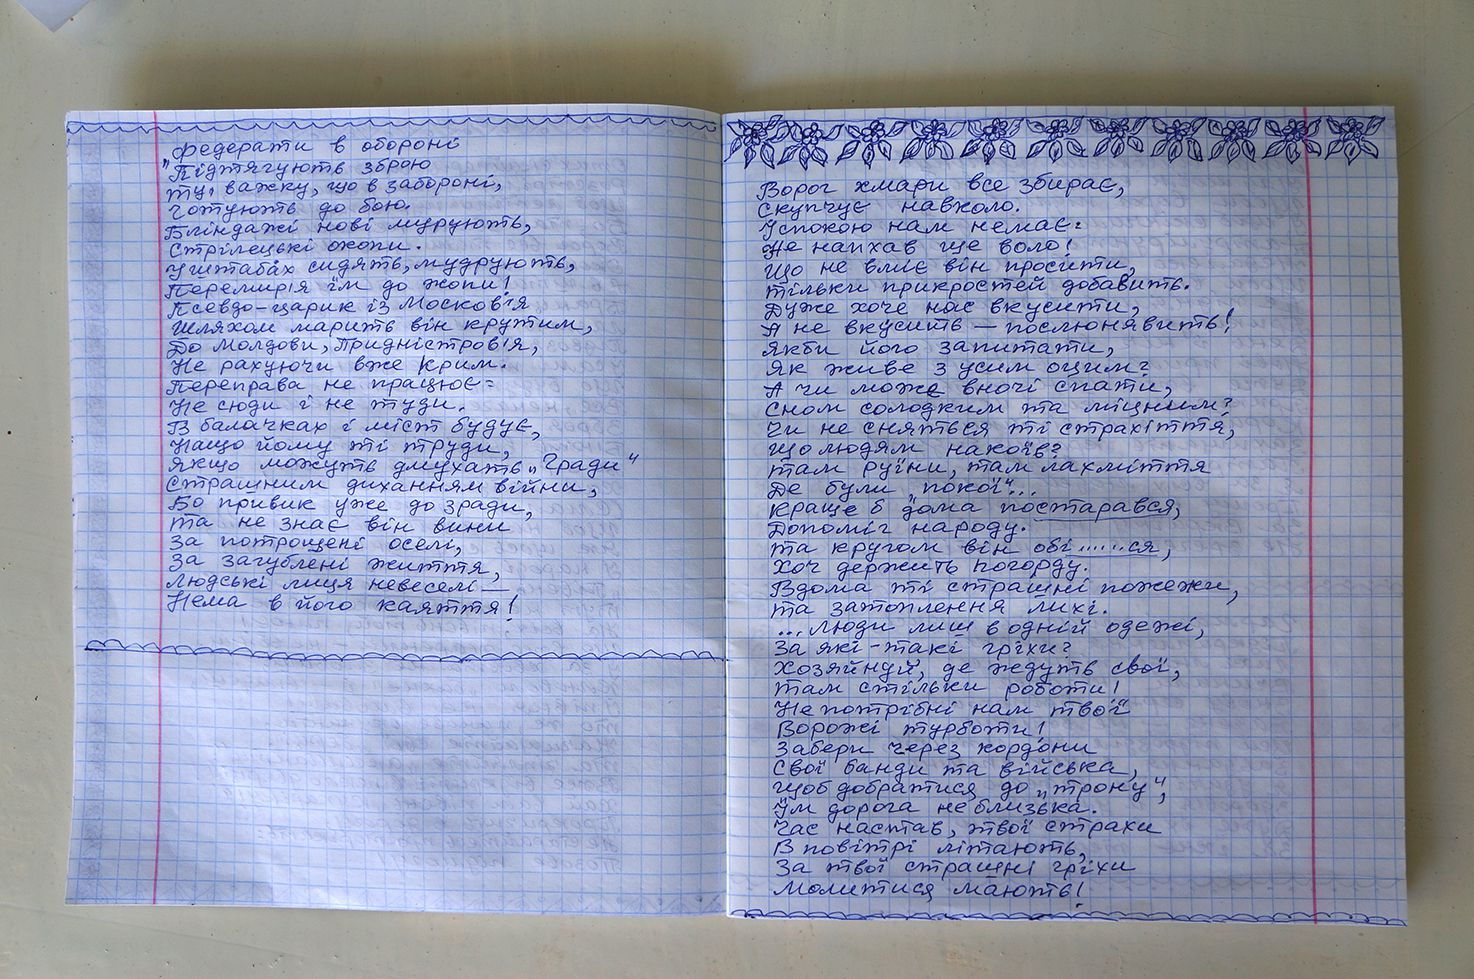 Федерати в обороні
"Підтягують зброю
Ту, важку, що в забороні,
Готують до бою.
Бліндажі нові мурують,
Стрілецькі окопи.
У штабах сидять, мудрують,
Перемир'я їм до жопи!
Псевдо-царик із Московія
Шляхом марить він крутим,
До Молдови, Придністров'я,
Не рахуючи вже Крим.
Переправа не працює:
Не сюди і не туди.
В балачках і міст будує,
Нащо йому ті труди,
Якщо можуть дмухать „Гради"
Страшним диханням війни,
Бо привик уже до зради,
Та не знає він вини
За потрощені оселі,
За загублені життя,
Людські лиця невеселі —
Нема в його каяття!
Ворог хмари все збирає,
Скупчує навколо.
Успокою нам немає:
Не напхав ще воло!
Що не вміє він просити,
Тільки прикростей добавить.
Дуже хоче нас вкусити,
А не вкусить — послюнявить!
Якби його запитати,
Як живе з усим оцим?
А чи може вночі спати,
Сном солодким та міцним?
Чи не сняться ті страхіття,
Що людям накоїв?
Там руїни, там лахміття
Де були „покої"...
Краще б дома постарався,
Допоміг народу.
Та кругом він обі......ся,
Хоч держить погорду.
Вдома ті страшні пожежи,
Та затоплення лихі.
...Люди лиш в одній одежі,
За які-такі гріхи?
Хозяйнуй, де ждуть свої,
Там стільки роботи!
Не потрібні нам твої
Ворожі турботи!
Забери через кордони
Свої банди та війська,
Щоб добратися до „трону",
Їм дорога не близька.
Час настав, твої страхи
В повітрі літають,
За твої страшні гріхи
Молитися мають!